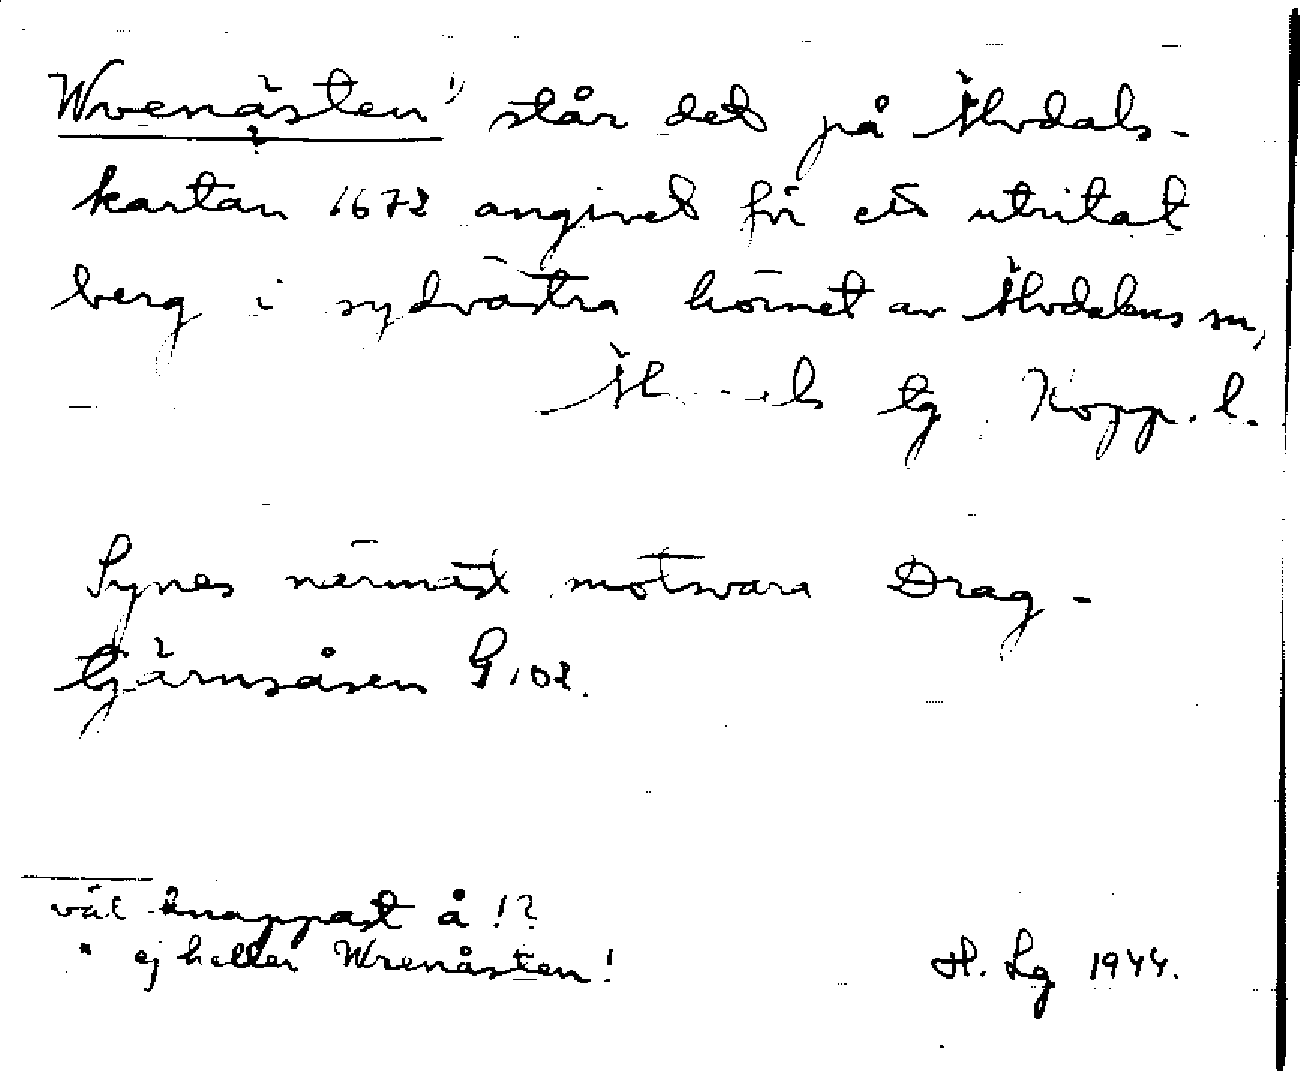 Wrenästen ¹⁾ står det på Älvdals-
kartan 1672 angivet för ett utritat
berg i sydvästra hörnet av Älvdalens sn,
tg Kopp. l.
Synes närmast motsvara Drag-
tjärnsåsen G 102.
väl knappast å!?
" ej heller Wrenåsten!
H. Lg 1944.